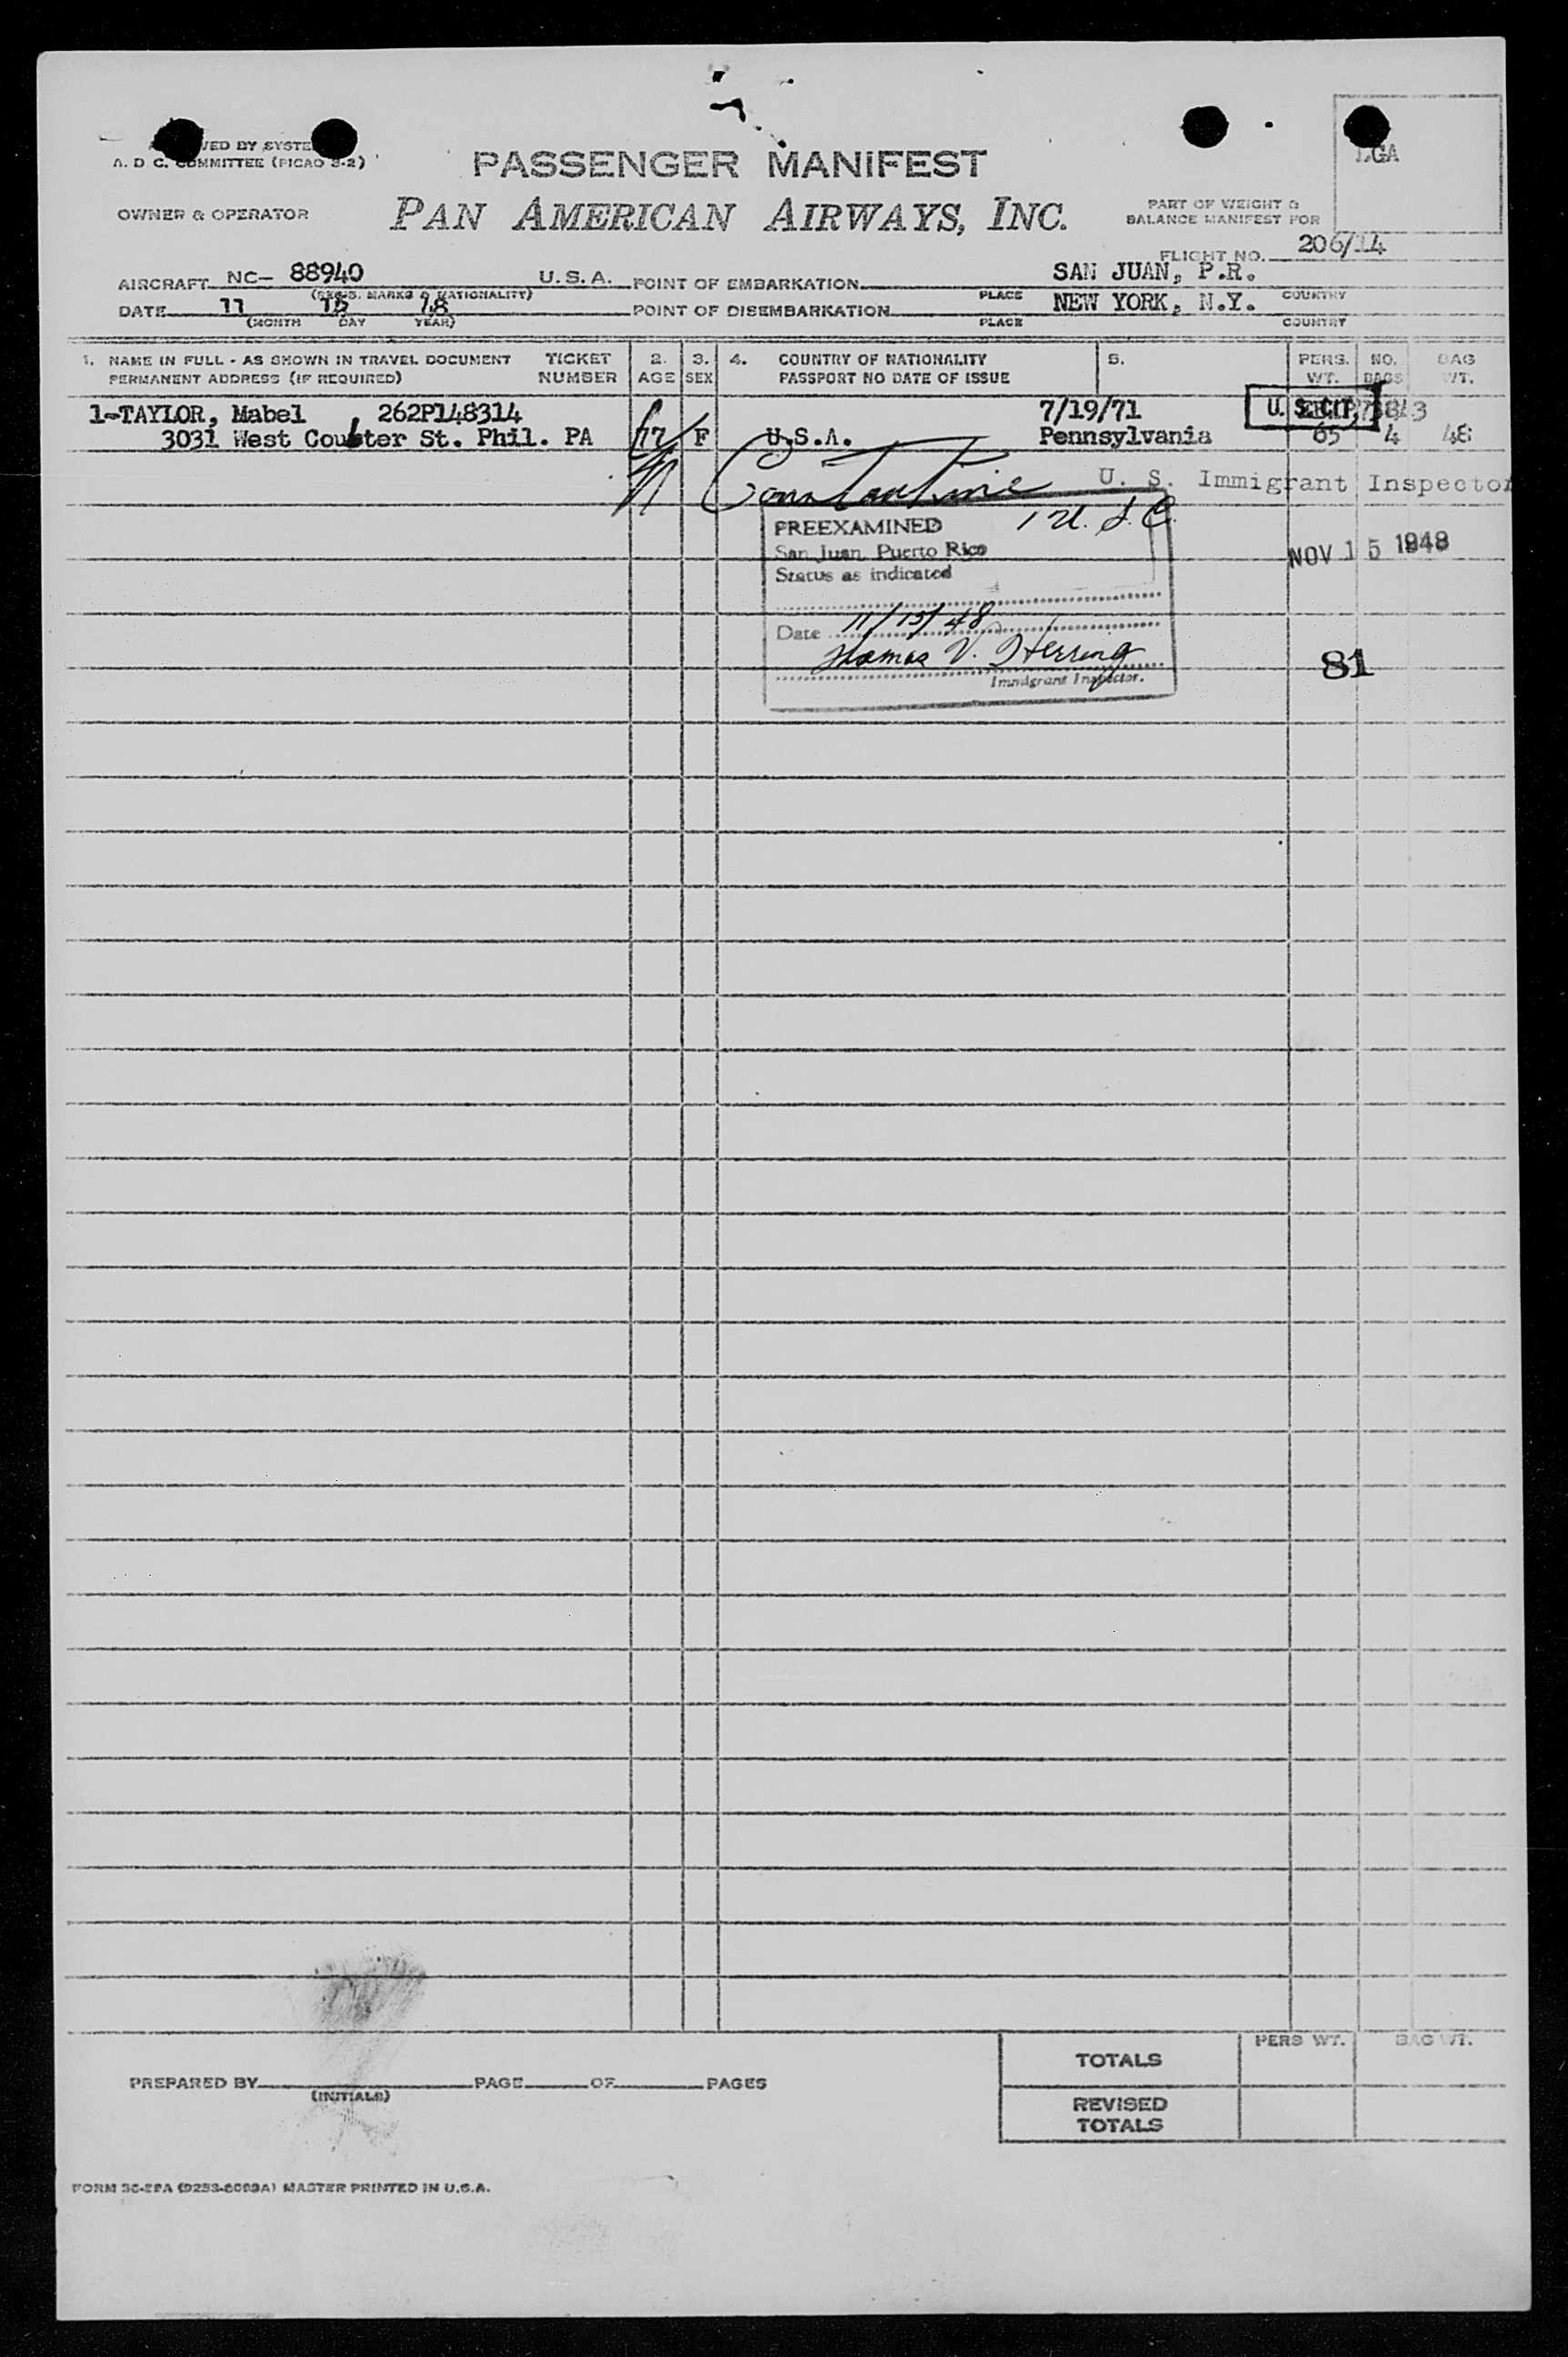 A. D. C. COMMITTEE (PICAO S-2)
LGA
PASSENGER MANIFEST
OWNER & OPERATOR
PAN AMERICAN AIRWAYS, INC.
PART OF WEIGHT &
BALANCE MANIFEST FOR
FLIGHT NO. 206/14
AIRCRAFT NC- 88940 U.S.A. POINT OF EMBARKATION SAN JUAN, P.R.
(REG'S. MARKS & NATIONALITY) PLACE COUNTRY
DATE 11 15 48 POINT OF DISEMBARKATION NEW YORK, N.Y.
(MONTH DAY YEAR) PLACE COUNTRY
1. NAME IN FULL - AS SHOWN IN TRAVEL DOCUMENT TICKET 2. 3. 4. COUNTRY OF NATIONALITY 5. PERS. NO. BAG
PERMANENT ADDRESS (IF REQUIRED) NUMBER AGE SEX PASSPORT NO DATE OF ISSUE WT. BAGS WT.
1-TAYLOR, Mabel 262P148314 7/19/71 U. S. CIT.
3031 West Coulter St. Phil. PA 77 F U.S.A. Pennsylvania 65 4 48
Constantine U. S. Immigrant Inspector
PREEXAMINED 1 U.S.C.
San Juan, Puerto Rico
NOV 15 1948
Status as indicated
Date 11/15/48
Thomas V. Herring
Immigrant Inspector.
81
TOTALS PERS WT. BAG WT.
PREPARED BY PAGE OF PAGES
(INITIALS)
REVISED
TOTALS
MASTER PRINTED IN U.S.A.